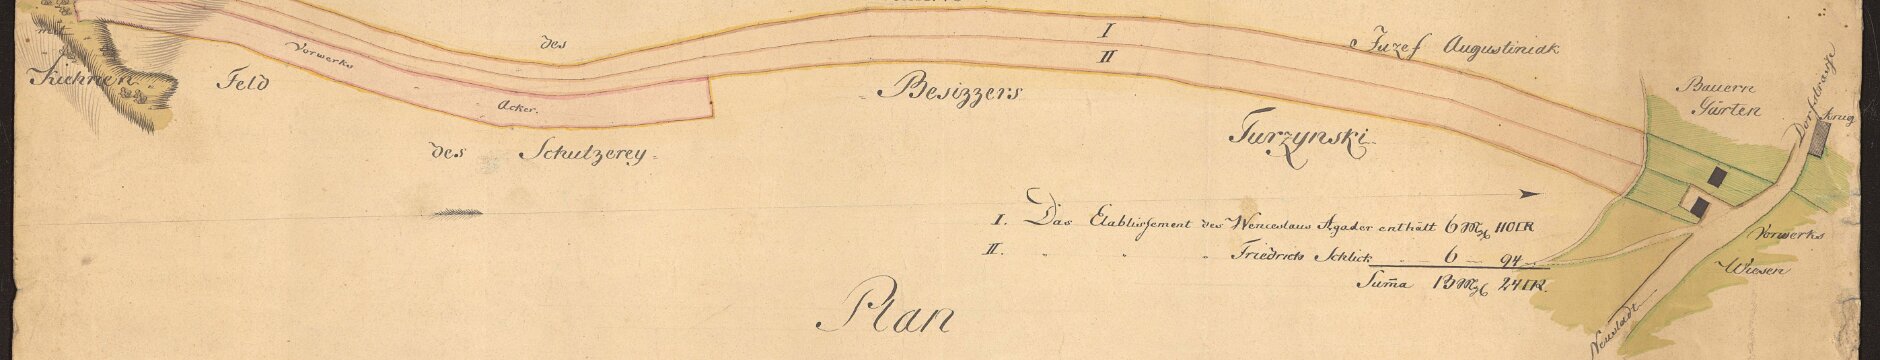 des
I
II
Juzef Augustiniak
Vorwerks
Acker.
Kiehnen
Feld
Besizzers
Bauern
Gärten
Dorfstrasse
Krug
Turzynski
des Schulzerey
I. Das Etablissement des Wenceslaus Agader enthält 6 Mg 110 □R
II. " " " Friedrich Schlick - 6 - 94 -
Suma 13 Mg 24 □R.
Vorwerks
Wiesen
Plan
Neustadt